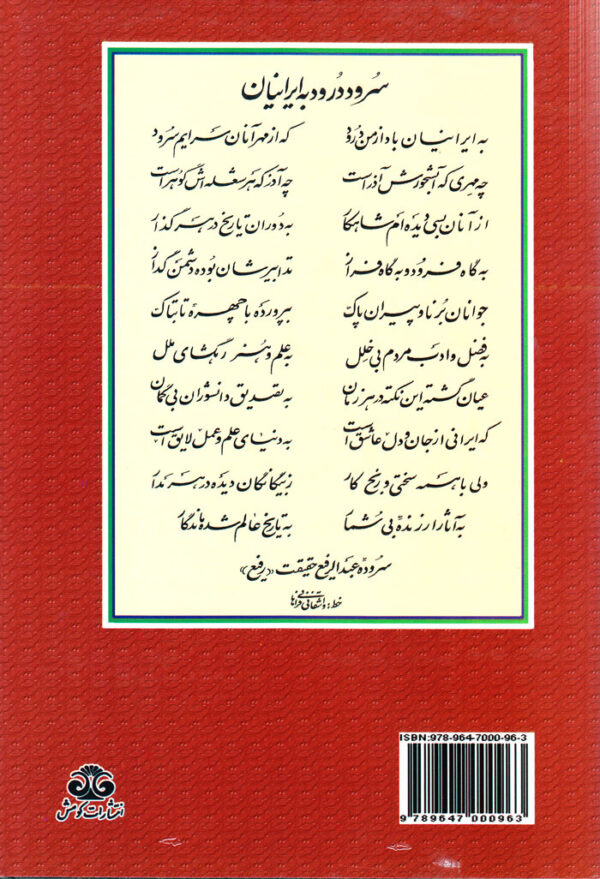 سرود درود به ایرانیان
به ایرانیان باد از من درود که از مهر آنان سرایم سرود
چه مهری که آبشخورش آذر است چه آذر که هر شعله اش گوهر است
از آنان بسی دیده ام شاهکار به دوران تاریخ در هر گذار
به گاه فرود و به گاه فراز تدابیرشان بوده دشمن گداز
جوانان برنا و پیران پاک بپرورده با چهره تابناک
به فضل و ادب مردم بی خلل به علم و هنر رگهای ملل
عیان گشته این نکته در هر زمان به تصدیق دانشوران بی گمان
که ایرانی از جان و دل عاشق است به دنیای علم و عمل لایق است
ولی با همه سختی و رنج کار ز بیگانگان دیده در هر مدار
به آثار ارزنده بی شمار به تاریخ عالم شده ماندگار
سروده عبدالرفیع حقیقت «رفیع»
خط:
ISBN:978-964-7000-96-3
9 789647 000963
انتشارات کومش